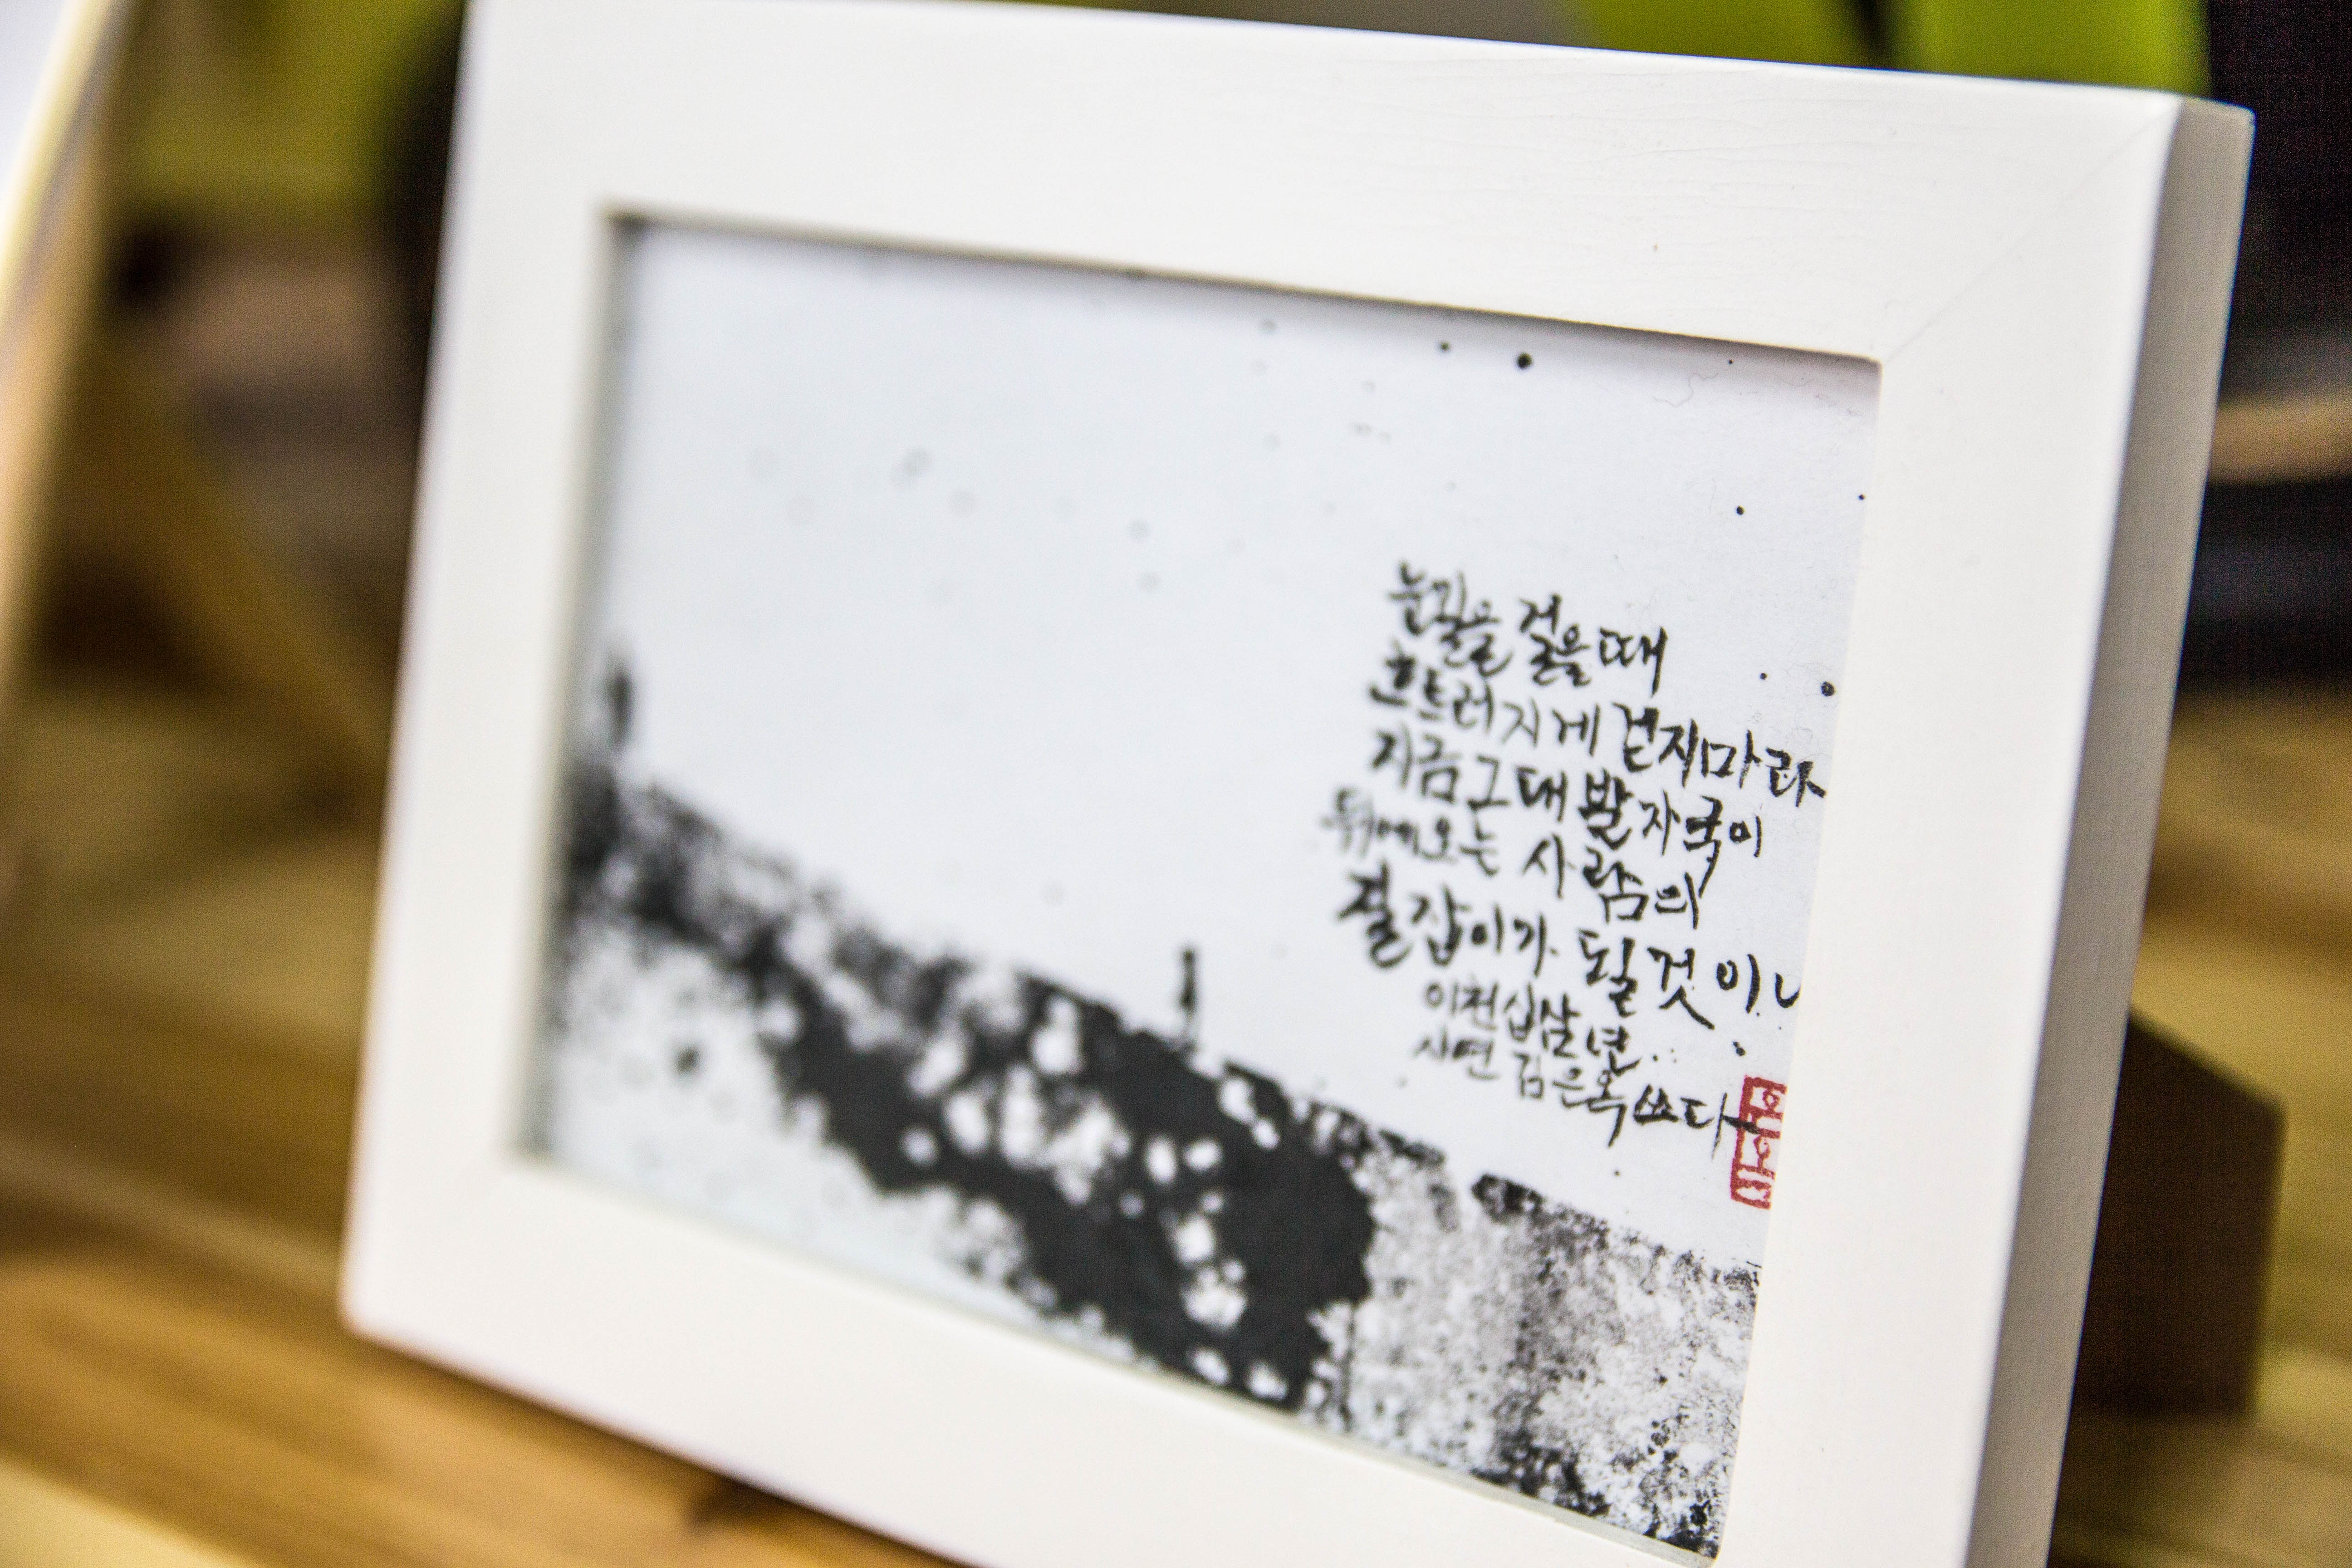 눈길을 걸을때
흐트러지게 걷지마라
지금 그대 발자국이
뒤에오는 사람의
길잡이가 될것이니
이천십삼년
시연 김은옥 쓰다